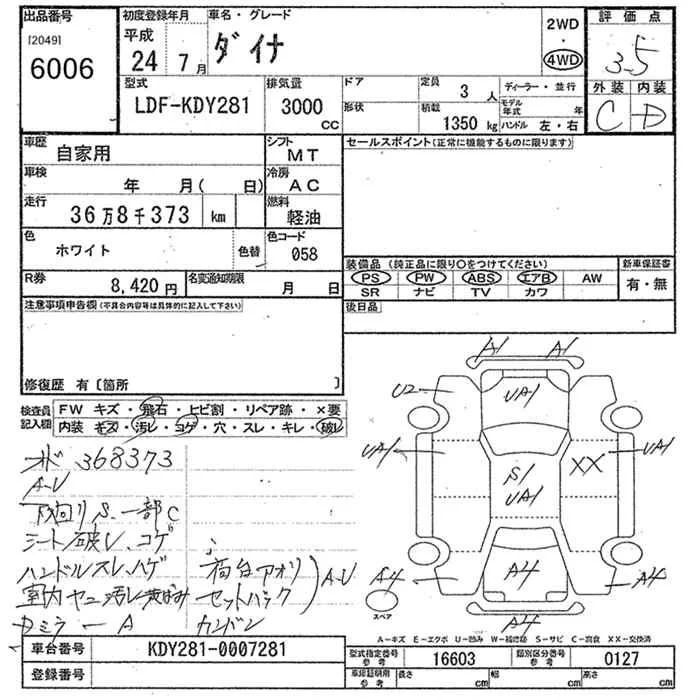 出品番号
[2049]
6006
初度登録年月
平成
24 7月
車名・グレード
ダイナ
2WD
・
4WD
評価点
3.5
外装 内装
C D
型式
LDF-KDY281
排気量
3000
CC
ドア
形状
定員
3人
積載
1350kg
ディーラー・並行
モデル年式 年
ハンドル 左・右
車歴
自家用
シフト
MT
車検
年 月( 日)
冷房
AC
走行
36万8千373 km
燃料
軽油
色
ホワイト
色替
色コード
058
R券
8,420円
名変通知期限
月 日
注意事項申告欄(不具合内容等は具体的に記入して下さい)
修復歴 有〔箇所 〕
セールスポイント(正常に機能するものに限ります)
装備品(純正品に限り○をつけてください)
PS PW ABS エアB AW
SR ナビ TV カワ
新車保証書
有・無
後日品
検査員記入欄
FW キズ・飛石・ヒビ割・リペア跡・×要
内装 キズ・汚レ・コゲ・穴・スレ・キレ・破レ
368373
A-U
下回りS、一部C
シート破レ、コゲ
ハンドルスレ、ハゲ
室内ヤニ汚レ
荷台アオリ
セットバック
A-U
A1 A1
U2
UA1
UA1
XX
UA1
S1
UA1
A4
A4
A4
A4
スペア
A-キズ E-エクボ U-凹み W-補修跡 S-サビ C-腐食 XX-交換済
車台番号
KDY281-0007281
登録番号
型式指定番号
参考
16603
類別区分番号
参考
0127
車検証明用
参考
長さ cm
幅 cm
高さ cm